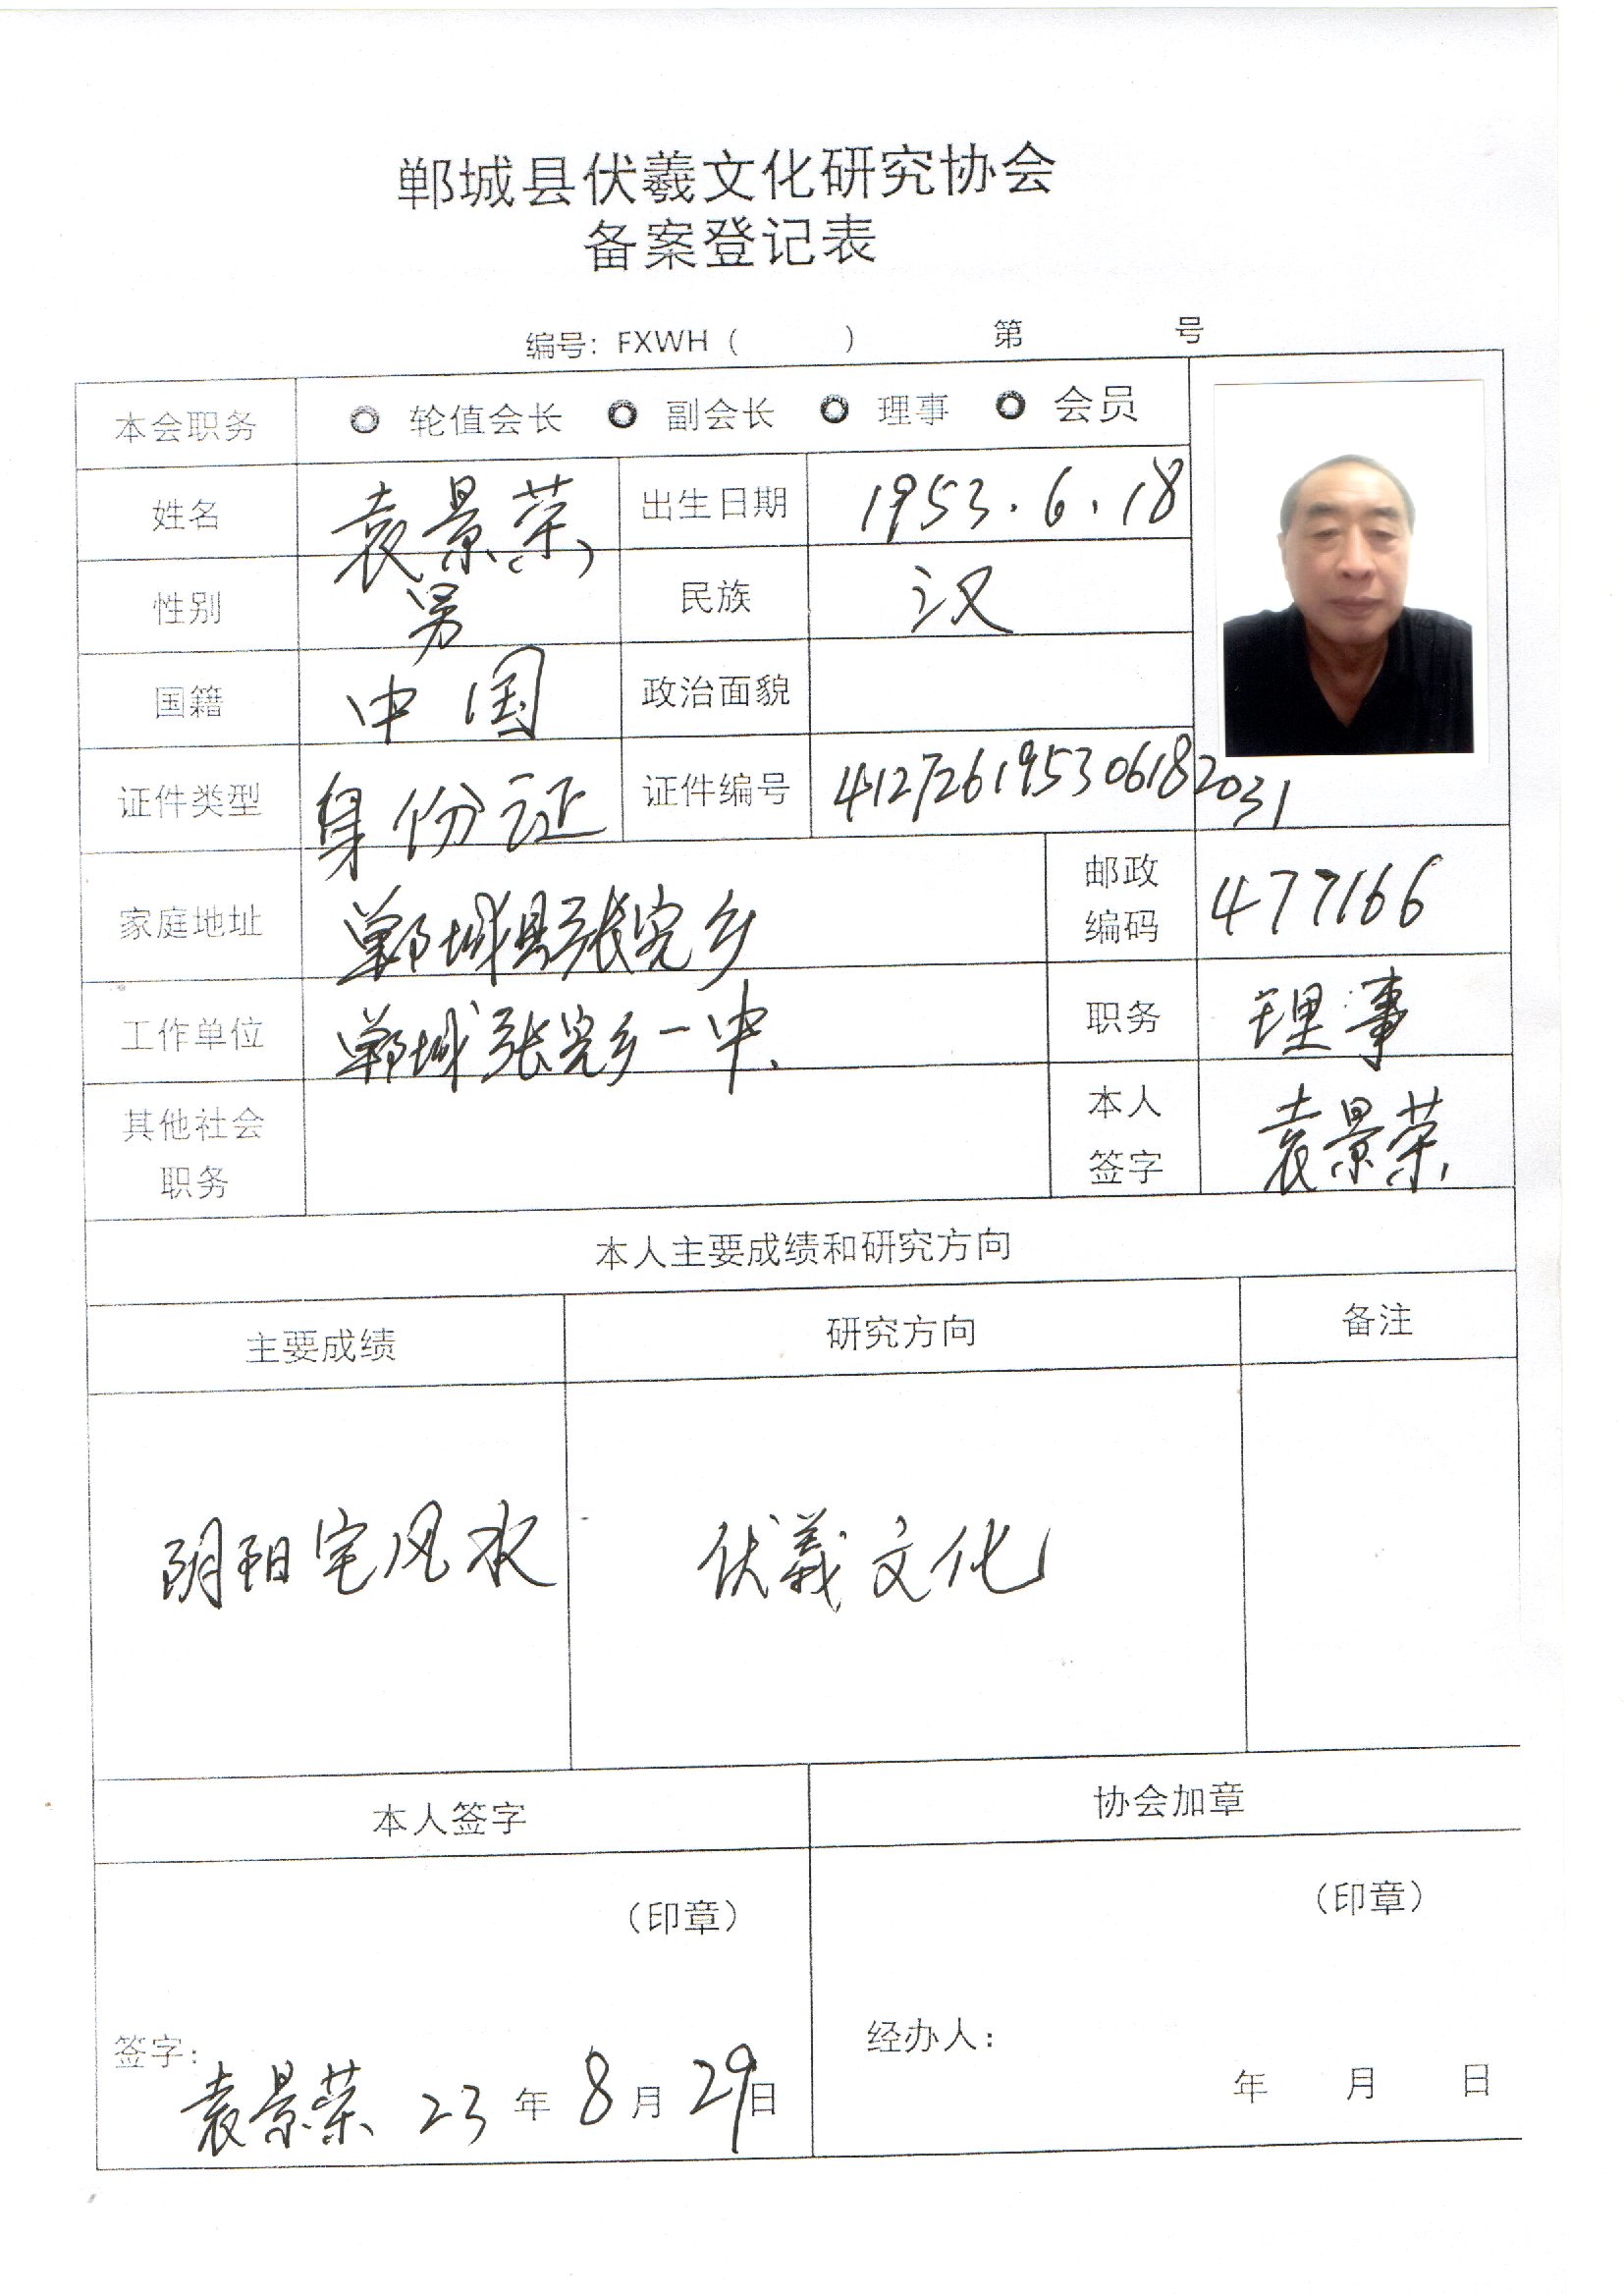 郸城县伏羲文化研究协会
备案登记表
编号：FXWH（ ） 第 号
本会职务 轮值会长 副会长 理事 会员
姓名 袁景荣 出生日期 1953.6.18
性别 男 民族 汉
国籍 中国 政治面貌
证件类型 身份证 证件编号 412726195306182031
家庭地址 郸城县张完乡 邮政编码 477166
工作单位 郸城张完乡一中. 职务 理事
其他社会职务 本人签字 袁景荣
本人主要成绩和研究方向
主要成绩 研究方向 备注
阴阳宅风水 伏羲文化
本人签字 协会加章
（印章） （印章）
签字： 经办人：
袁景荣 23年8月29日 年 月 日